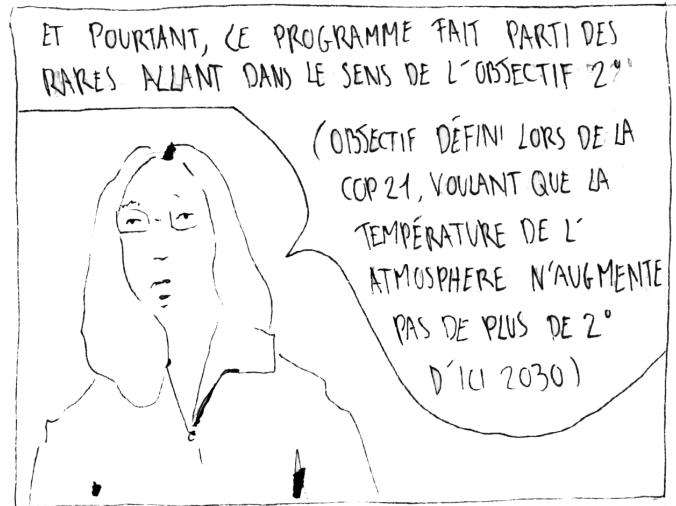 ET POURTANT, CE PROGRAMME FAIT PARTI DES
RARES ALLANT DANS LE SENS DE L'OBJECTIF 2°
(OBJECTIF DÉFINI LORS DE LA
COP 21, VOULANT QUE LA
TEMPÉRATURE DE L'
ATMOSPHERE N'AUGMENTE
PAS DE PLUS DE 2°
D'ICI 2030)